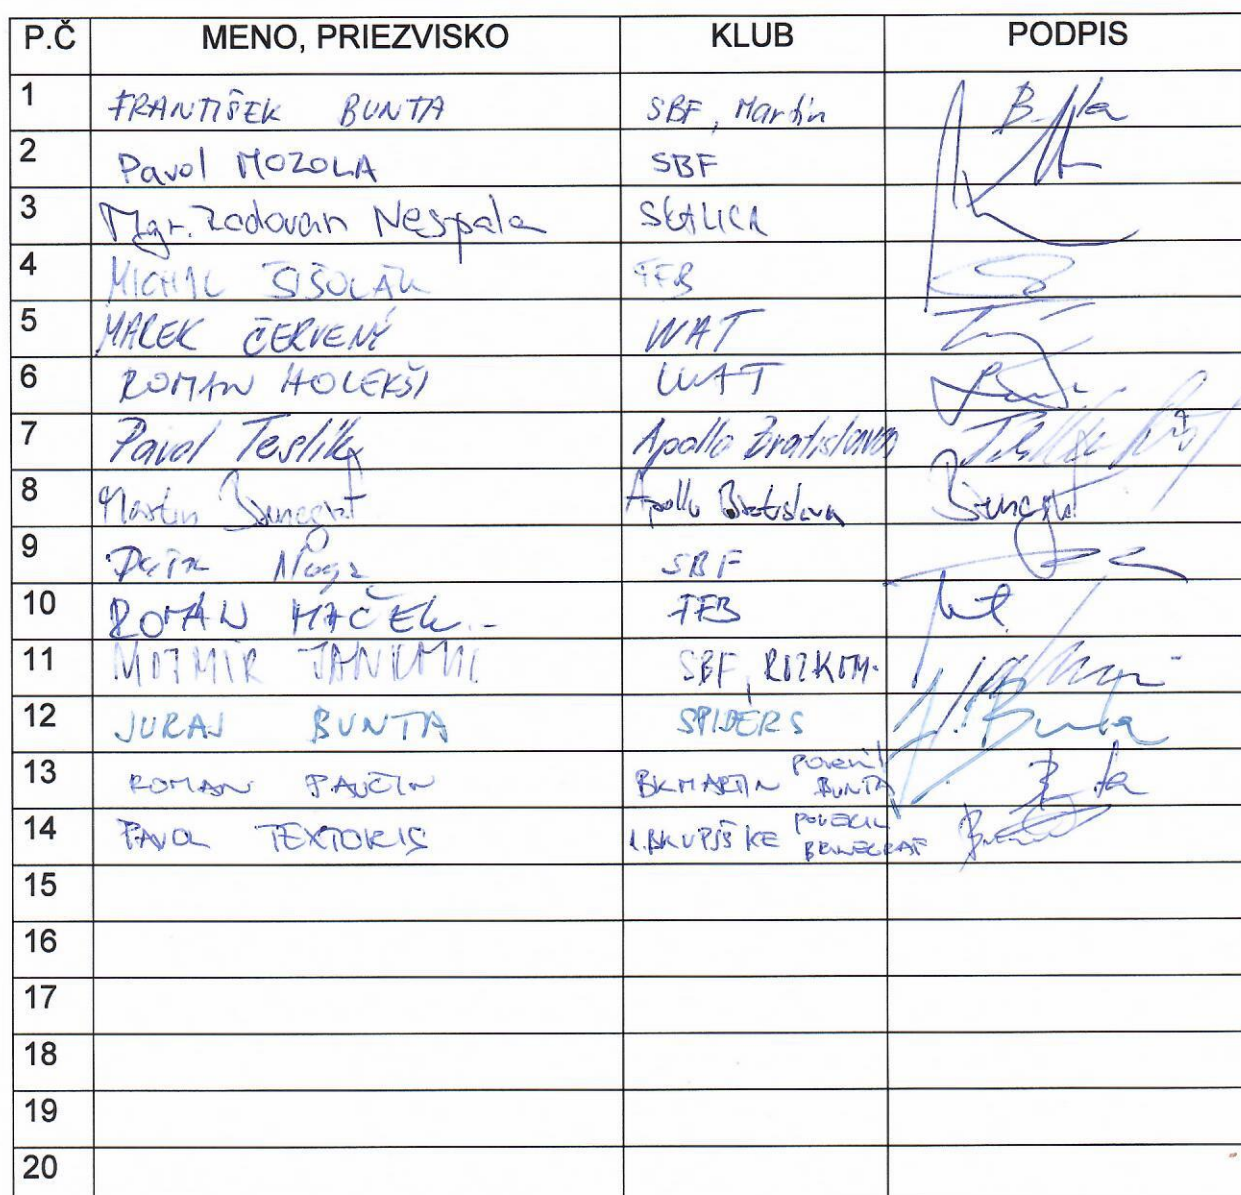 P.Č MENO, PRIEZVISKO KLUB PODPIS
1 FRANTIŠEK BUNTA SBF, Martin
2 Pavol MOZOLA SBF
3 Mgr. Radovan Nespala SKALICA
4 MICHAL ŠIŠOLÁK TFB
5 MAREK ČERVENÝ WAT
6 ROMAN HOLEKŠI WAT
7 Pavol Teslík Apollo Bratislava
8 Martin Apollo Bratislava
9 Noga SBF
10 ROMAN MAČEK TFB
11 MOJMÍR SBF, ROZKOM.
12 JURAJ BUNTA SPIDERS Bunta
13 ROMAN PAUČIN BK MARTIN poveril BUNTA
14 PAVOL TEXTORIS 1.BK UPJŠ KE POVERIL
15
16
17
18
19
20